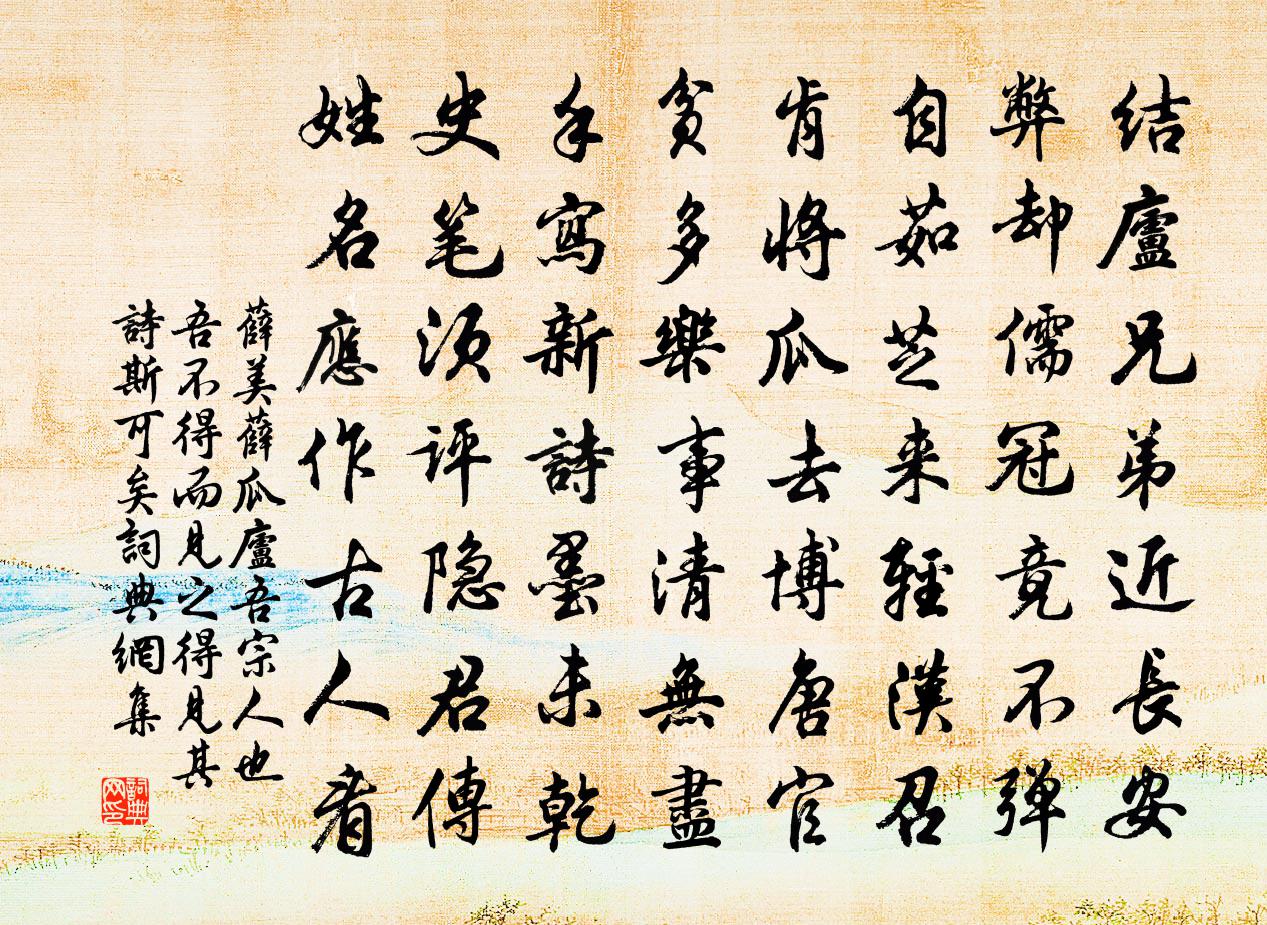 结廬兄弟近長安
弊却儒冠竟不弹
自茹芝来輕漢召
肯將瓜去博唐官
貧多樂事清無盡
手寫新詩墨未乾
史笔須评隐君傳
姓名應作古人看
薛美薛瓜廬吾宗人也
吾不得而見之得見其
詩斯可矣詞典網集
詞典
网印